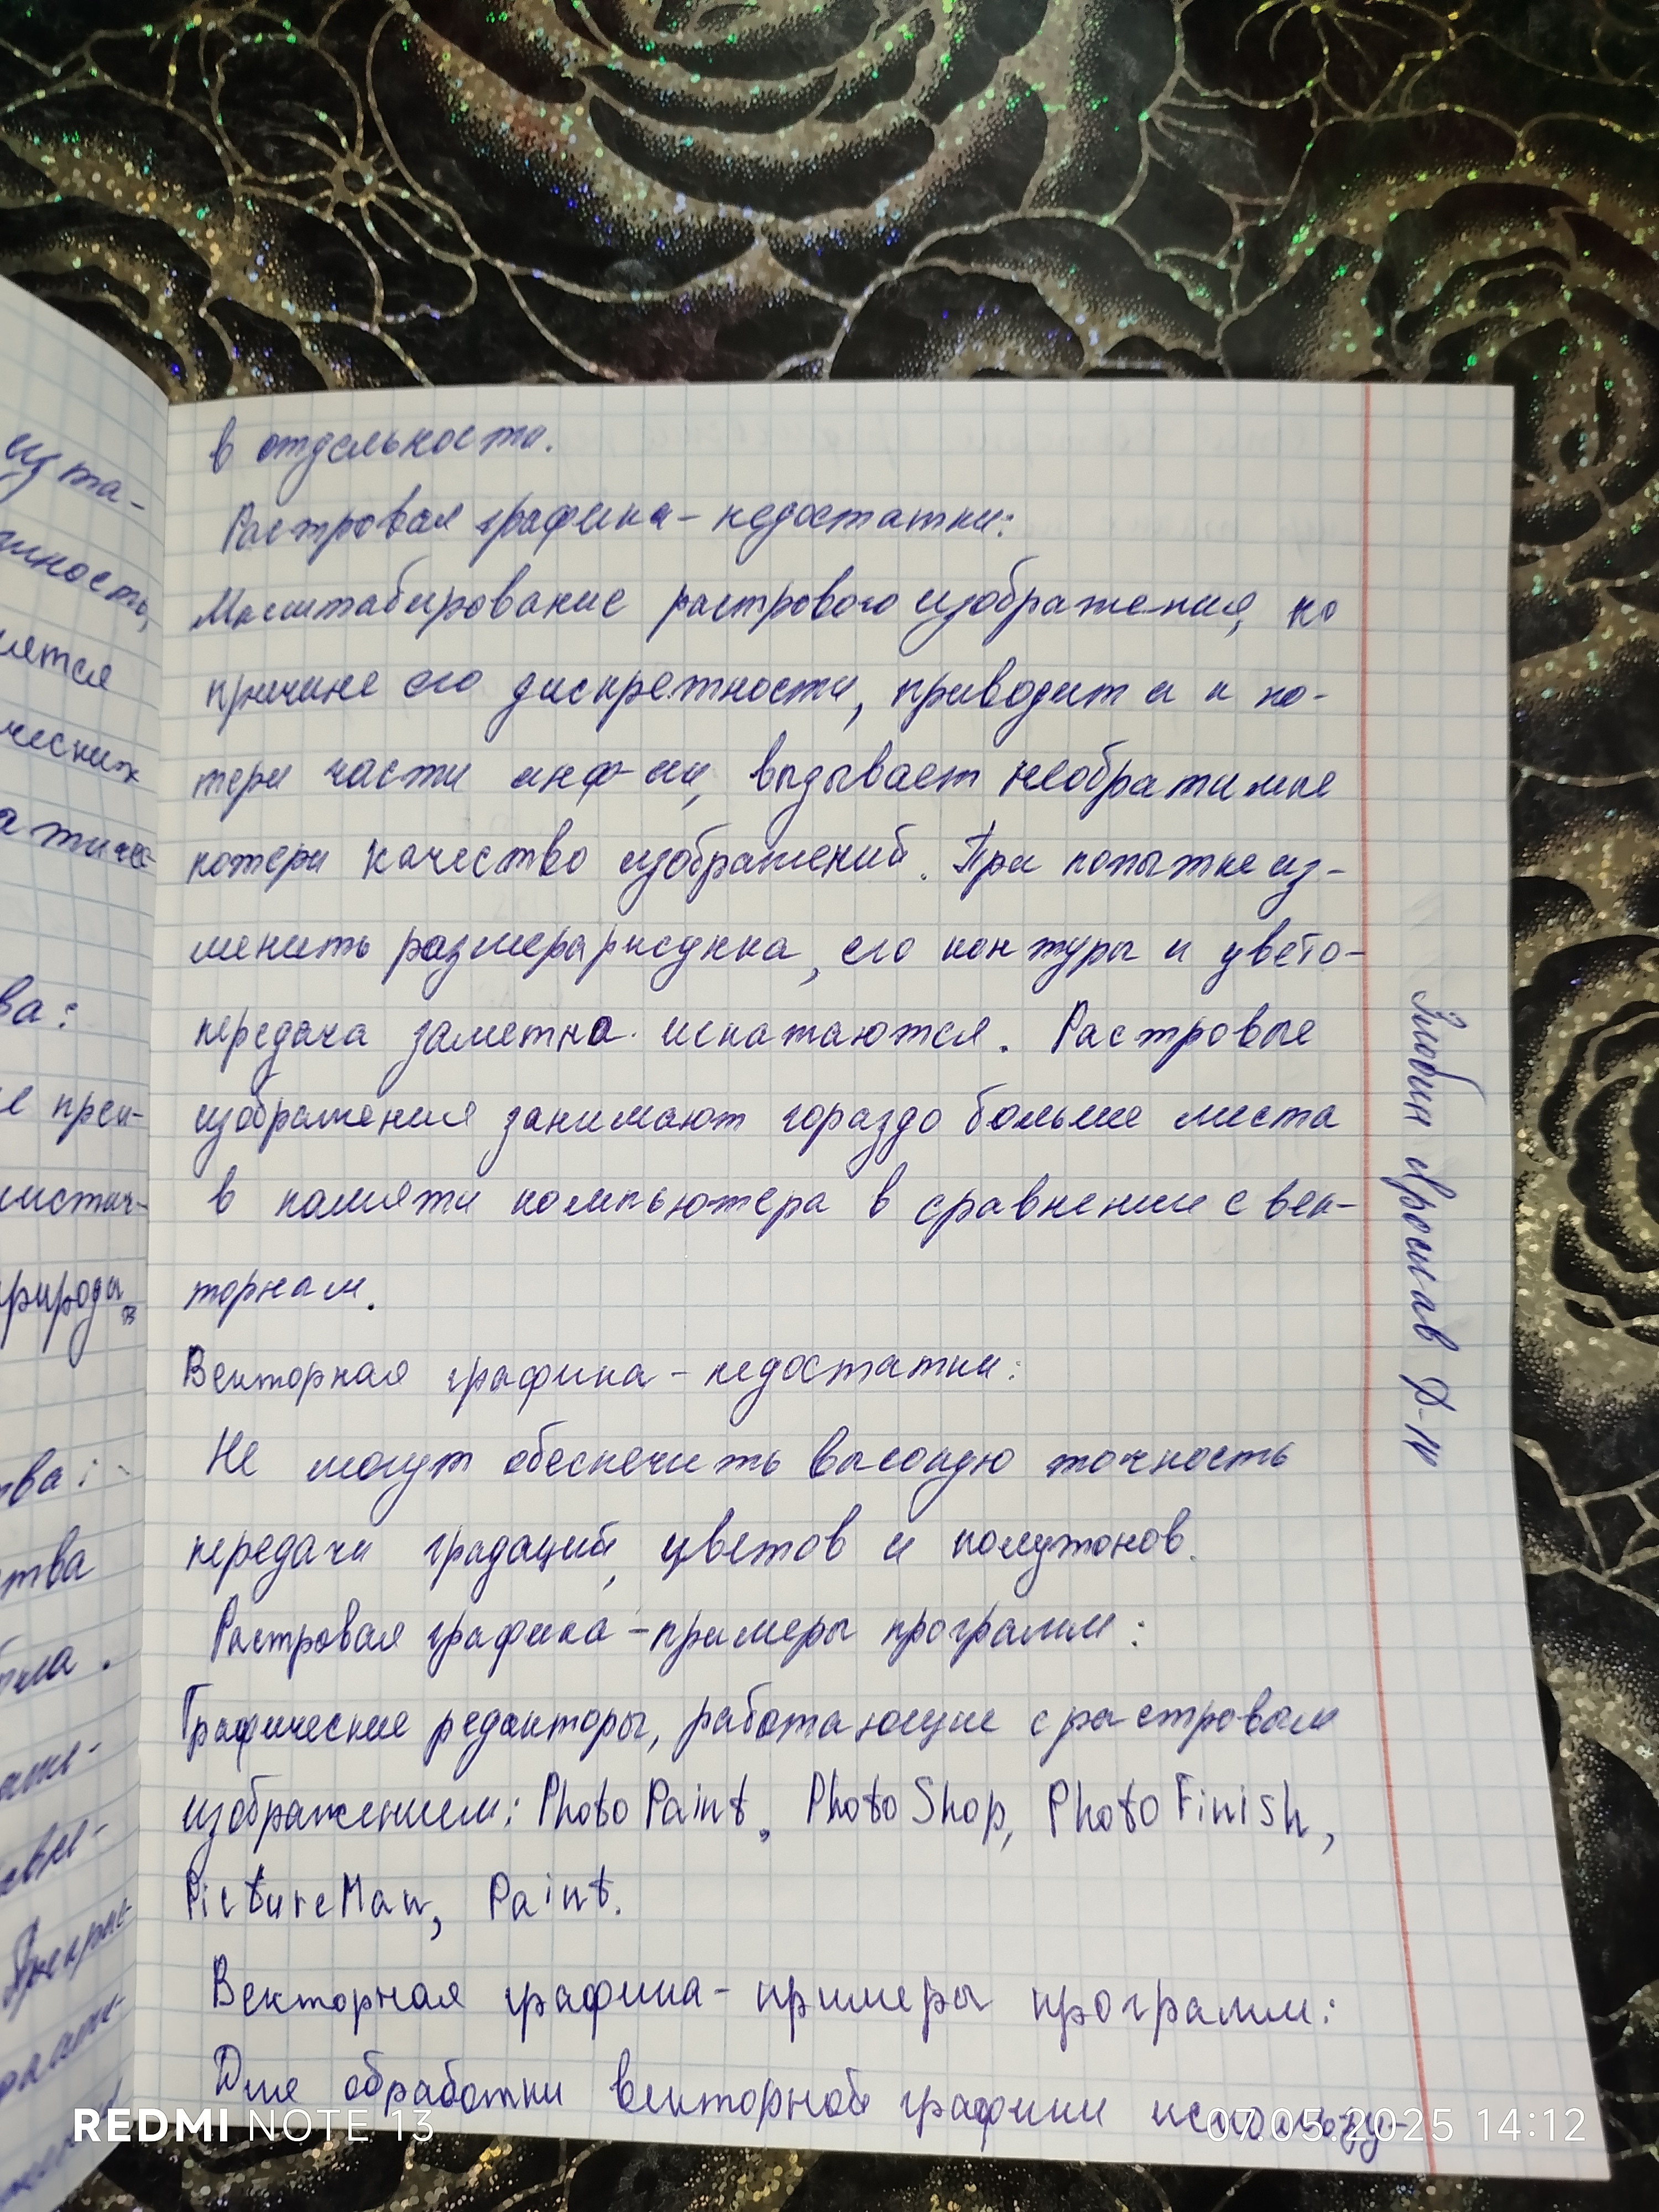 в отдельности.
Растровая графика - недостатки:
Масштабирование растрового изображения, по
причине его дискретности, приводит и к по-
тери части инф-ии, вызывает необратимые
потери качество изображений. При попытке из-
менить размера рисунка, его контуры и цвето-
передача заметна искажаются. Растровые
изображения занимают гораздо больше места
в памяти компьютера в сравнении с век-
торнам.
Векторная графика - недостатки:
Не могут обеспечить высокую точность
передачи градаций, цветов и полутонов.
Растровая графика - примеры программ:
Графические редакторы, работающие с растровым
изображением: PhotoPaint, PhotoShop, PhotoFinish,
PictureMan, Paint.
Векторная графика - примеры программ:
Для обработки векторной графики использу-
из та-
ность,
ляется
ческих
атичес-
ва:
е прек-
листич-
природы,
в
тва:
ства
Ярослав Д-14
REDMI NOTE 13
07.05.2025 14:12